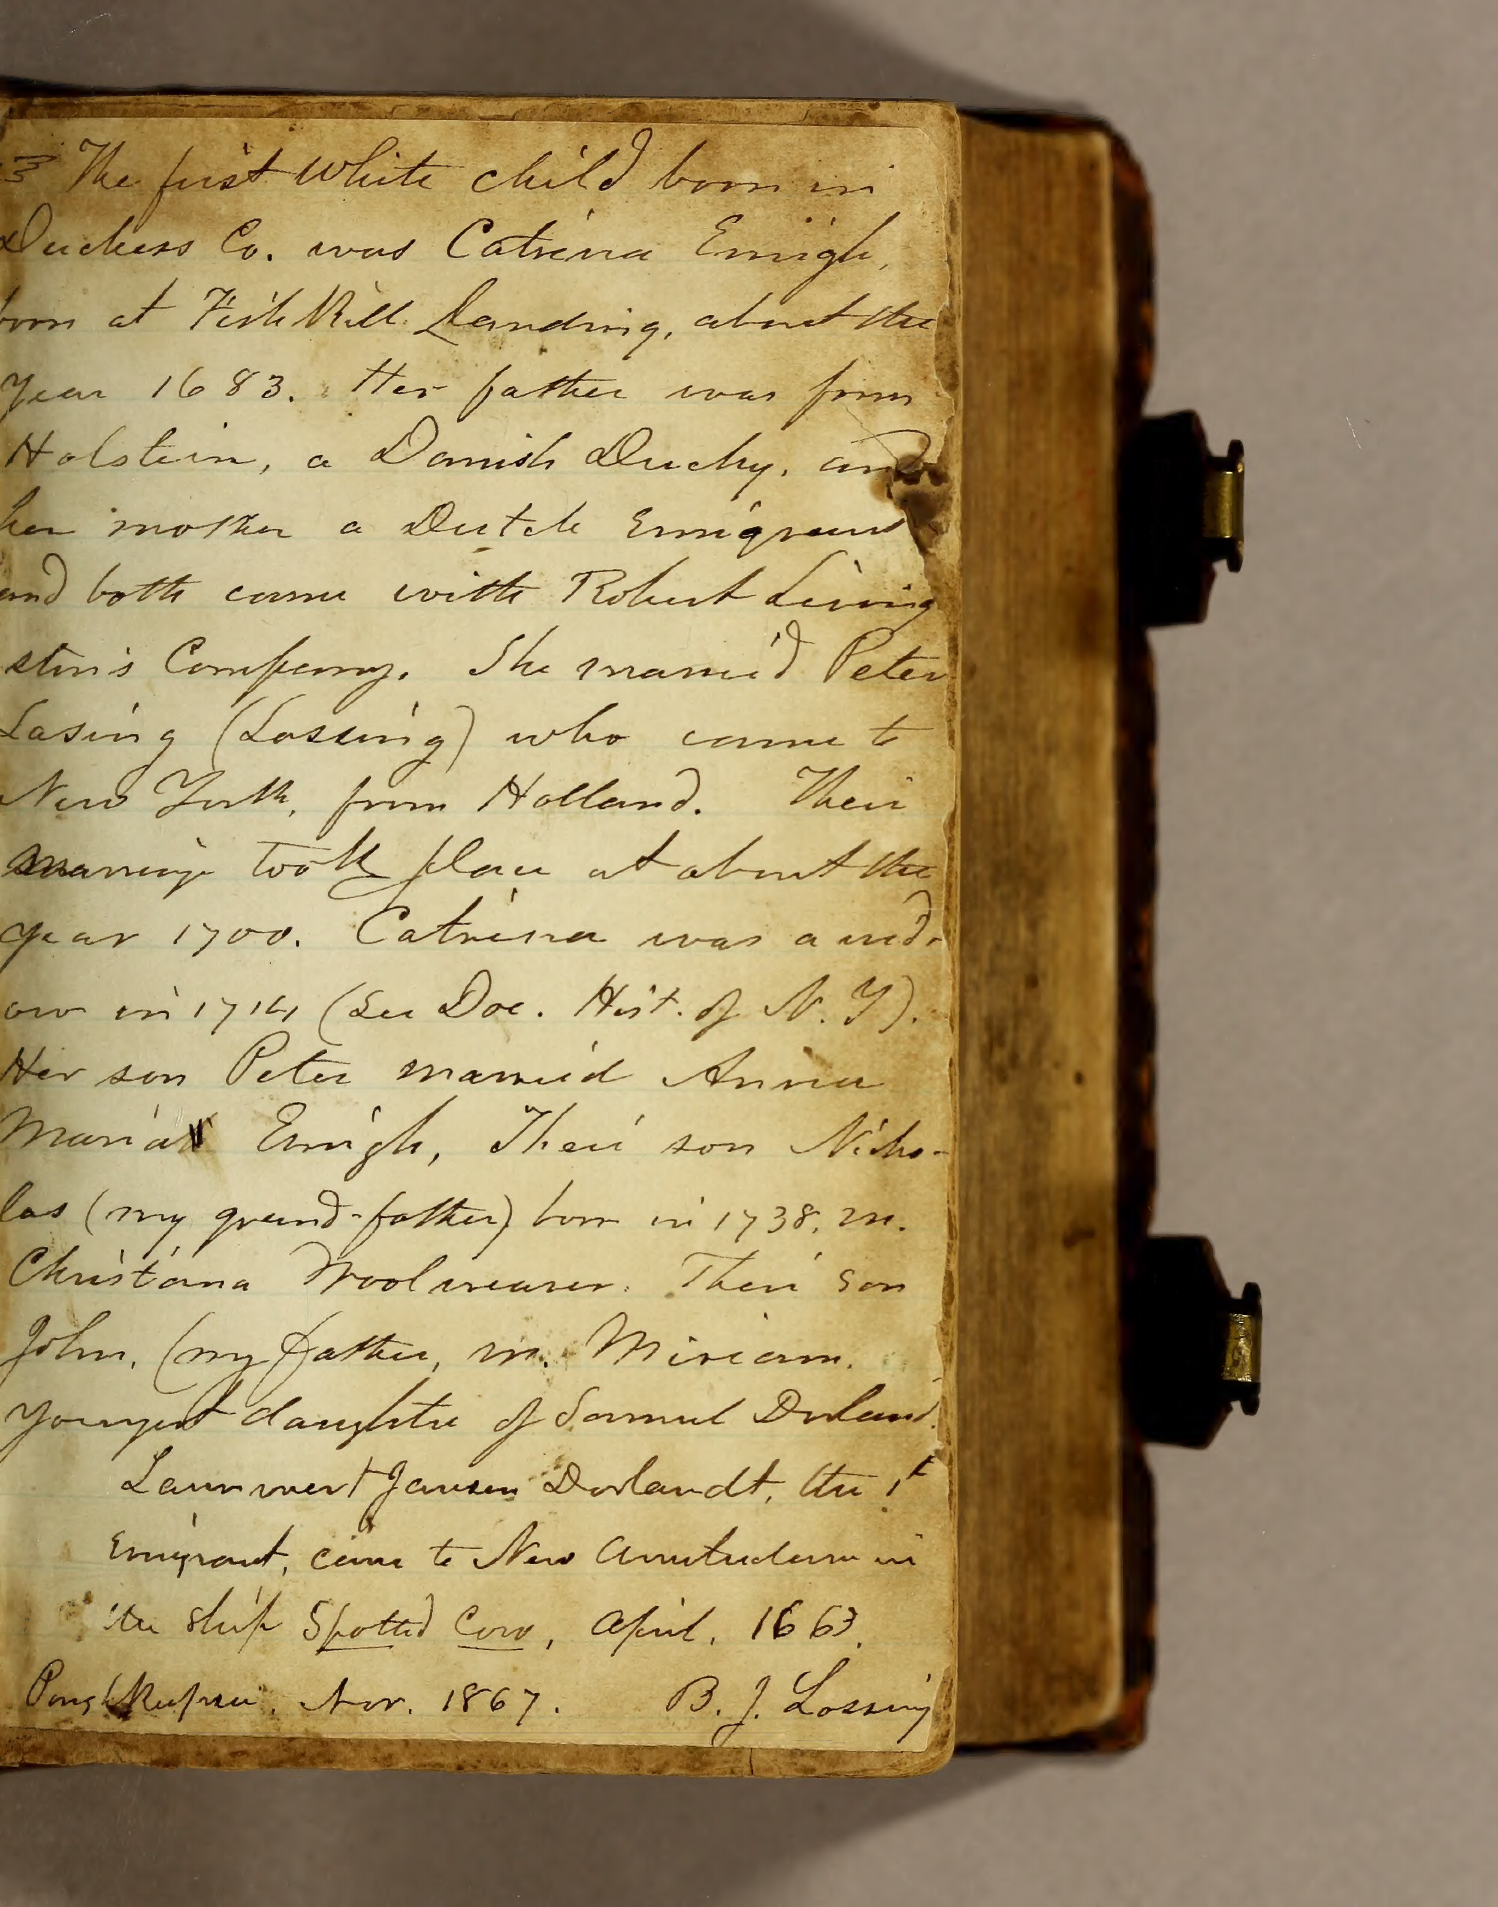 The first white child born in
Duchess Co. was Catrina Emigh,
born at Fish Kill Landing, about the
year 1683. Her father was from
Holstein, a Danish Duchy, and
her mother a Dutch Emigrant
and both came with Robert Living
ston's Company. She married Peter
Lasing (Lossing) who came to
New York, from Holland. Their
marriage took place at about the
year 1700. Catrina was a wid-
ow in 1714, (See Doc. Hist. of N. Y).
Her son Peter married Anna
Maria Emigh, Their son Nicho-
las (my grand-father) born in 1738, m.
Christiana Woolweaver. Their son
John, (my father, m. Miriam,
youngest daughter of Samuel Dorland.
Lammert Jansen Dorlandt, the 1t
Emigrant, came to New Amsterdam in
the ship Spotted Cow, April, 1663.
Poughkeepsie, Nov. 1867. B. J. Lossing